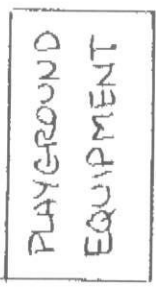 PLAYGROUND
EQUIPMENT